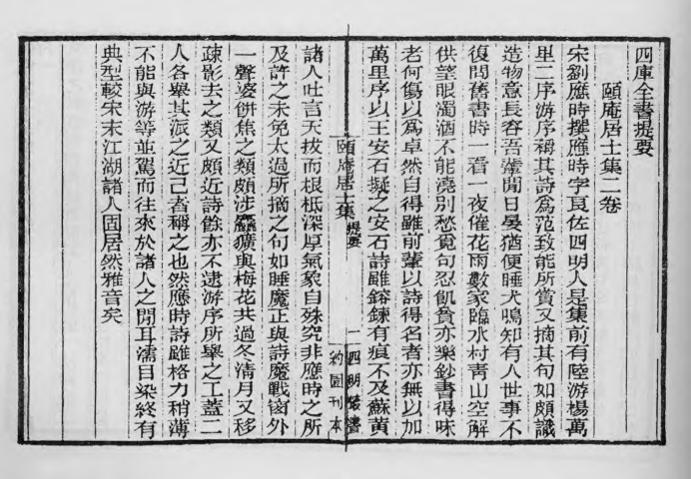 四庫全書提要
頤庵居士集二卷
宋劉應時撰應時字良佐四明人是集前有陸游楊萬
里二序游序稱其詩為范致能所賞又摘其句如頗識
造物意長容吾輩閒日晏猶便睡犬鳴知有人世事不
復問舊書時一看一夜催花雨數家臨水村青山空解
供望眼濁酒不能澆別愁覓句忍飢貧亦樂鈔書得味
老何傷以為卓然自得雖前輩以詩得名者亦無以加
萬里序以王安石擬之安石詩雖鎔鍊有痕不及蘇黃
頤庵居士集 提要 一 四明叢書
約園刊本
諸人吐言天拔而根柢深厚氣象自殊究非應時之所
及許之未免太過所摘之句如睡魔正與詩魔戰窗外
一聲婆餅焦之類頗涉麤獷與梅花共過冬清月又移
疎影去之類又頗近詩餘亦不逮游序所舉之工蓋二
人各舉其派之近己者稱之也然應時詩雖格力稍薄
不能與游等並駕而往來於諸人之間耳濡目染終有
典型較宋末江湖諸人固居然雅音矣